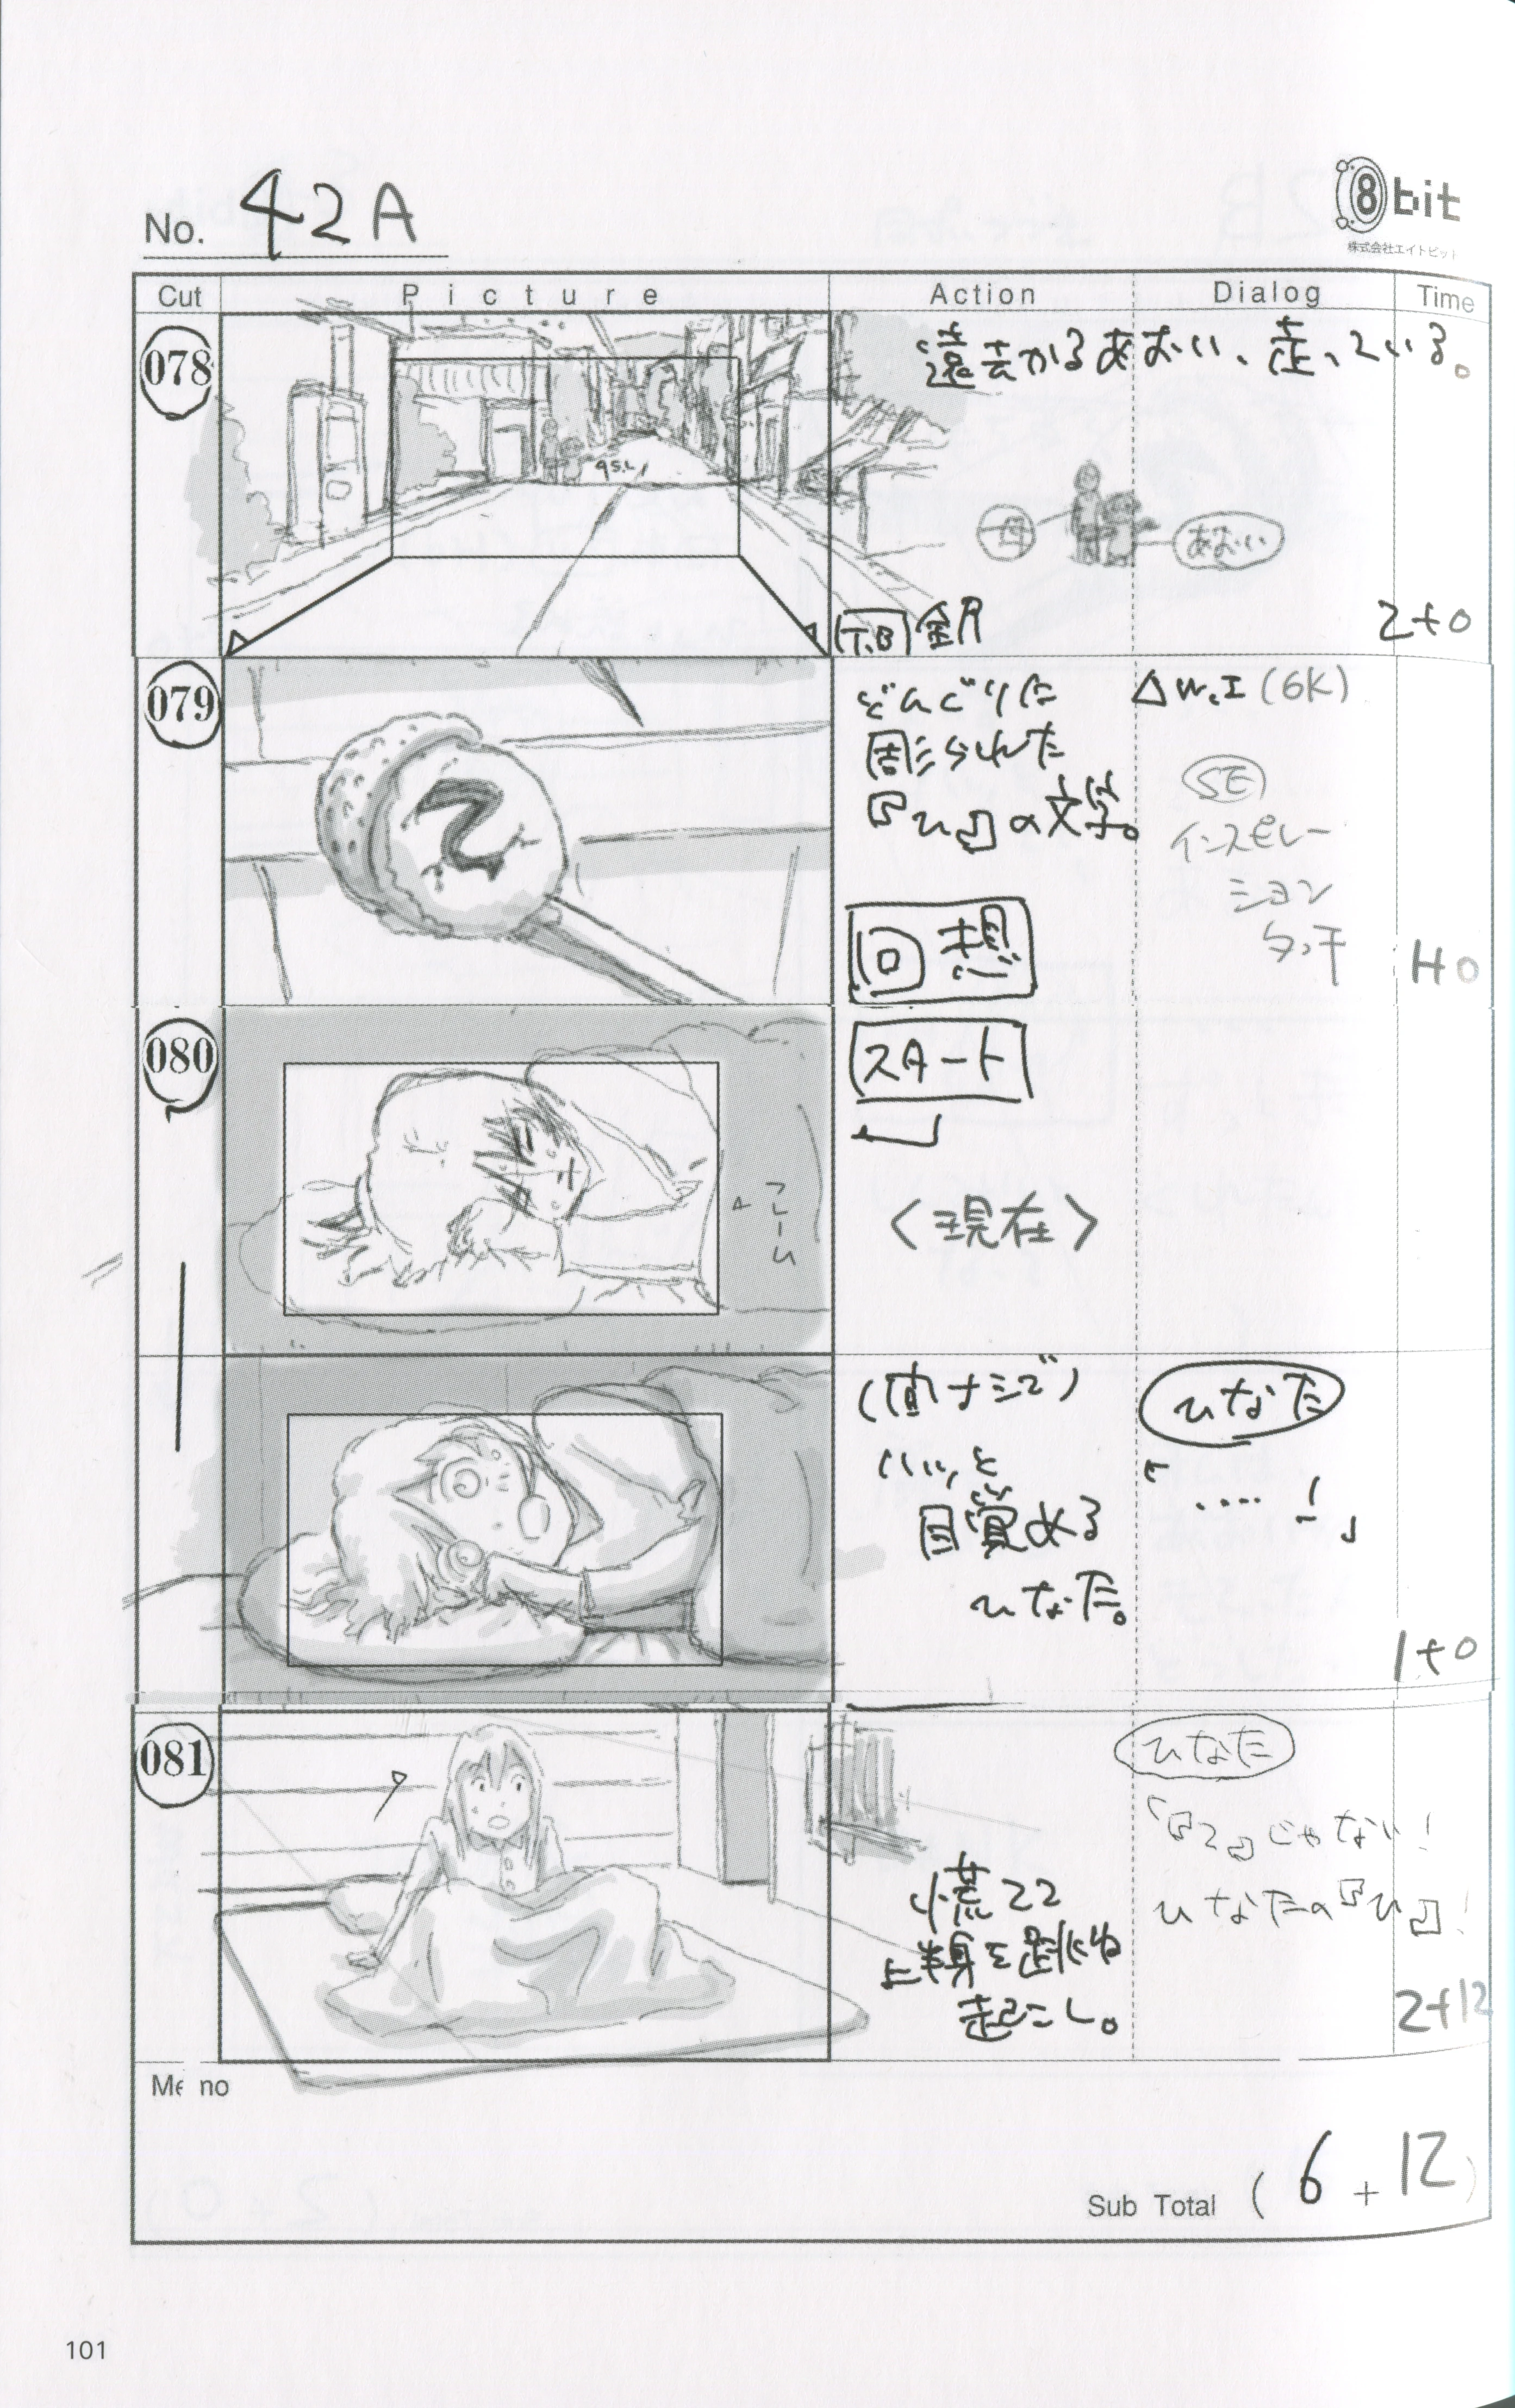 No. 42A
8bit
株式会社エイトビット
Cut Picture Action Dialog Time
078
遠去かるあおい、走っている。
母
あおい
T.B 全力
2+0
079
どんぐりに
彫られた
『ひ』の文字。
△W.I (6K)
SE
インスピレー
ション
タッチ
回想
1+0
080
スタート
フレーム
〈現在〉
(直ナシで)
ハッ、と
目覚める
ひなた。
ひなた
「‥‥!」
1+0
081
慌てて
上半身を跳ね
起こし。
ひなた
「『2』じゃない!
ひなたの『ひ』!
2+12
Memo
Sub Total ( 6 + 12 )
101